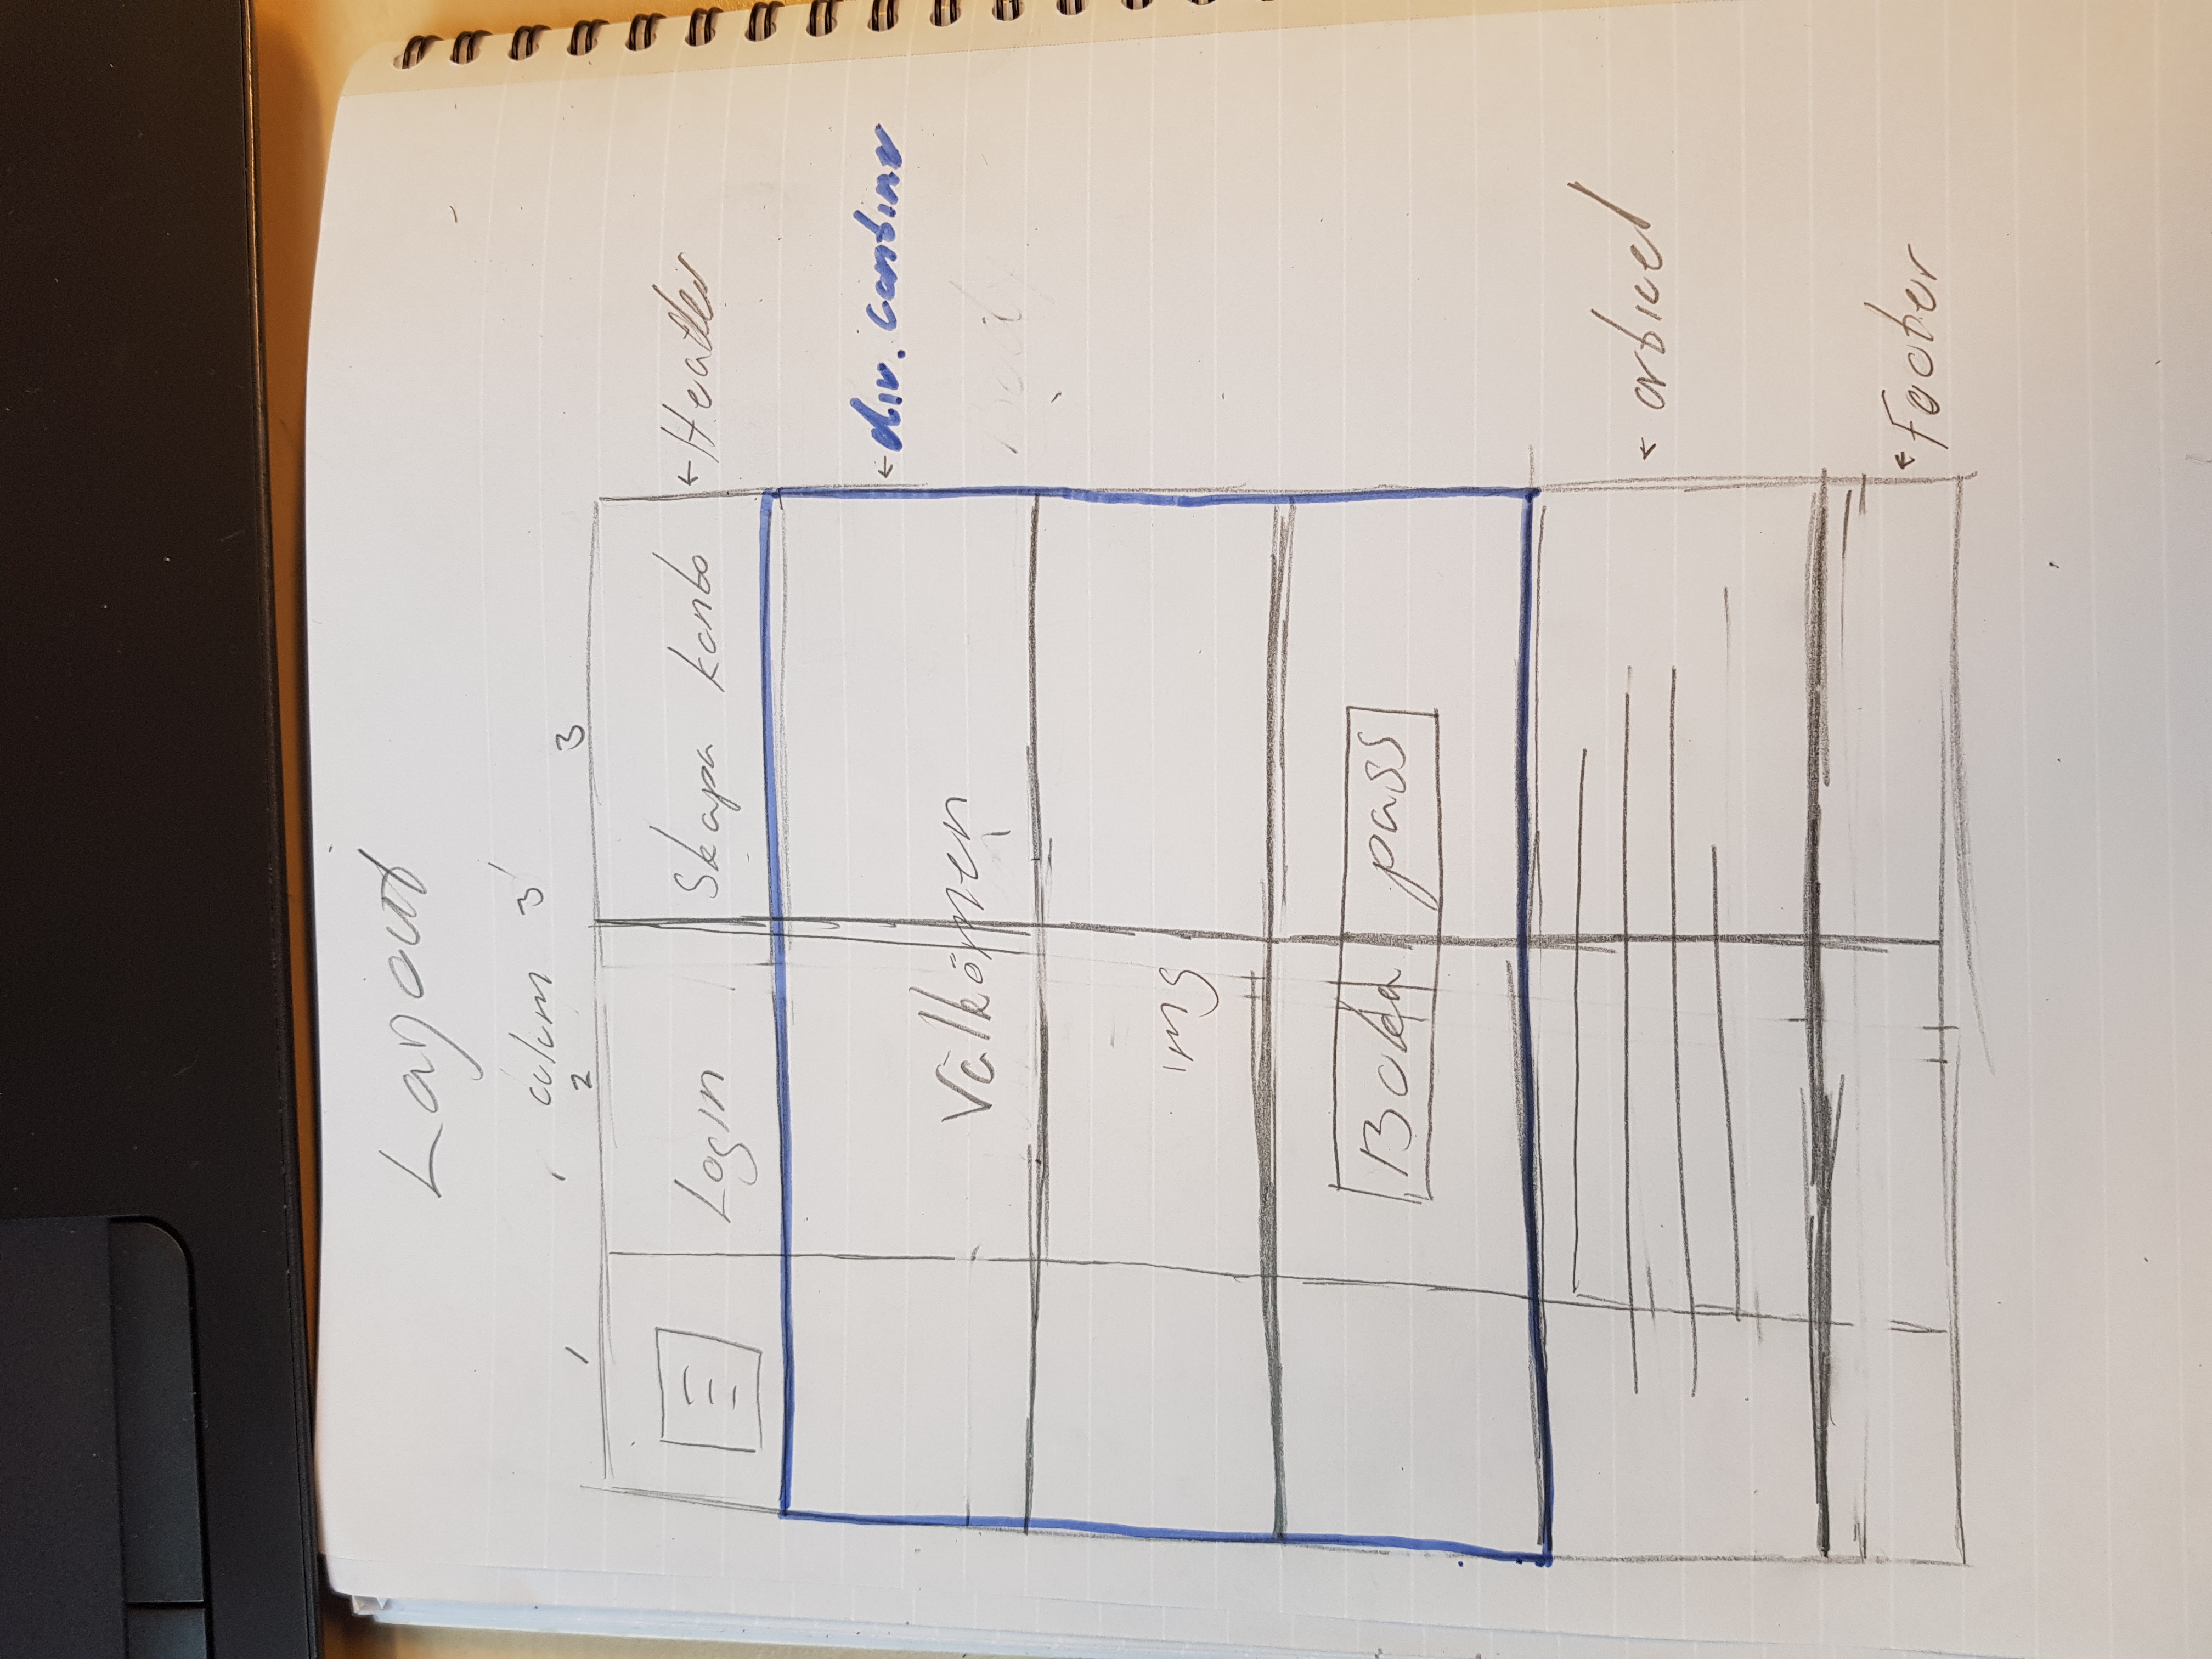 Layout
colum 3
1 2 3
Login Skapa konto ← Header
← div. continer
Välkömen
Body
img
Boka pass
← articel
← Footer